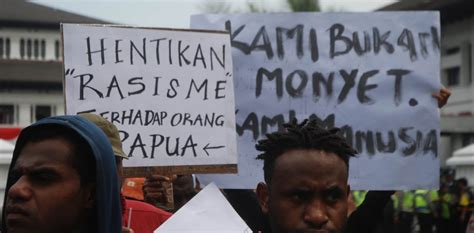 HENTIKAN
"RASISME"
TERHADAP ORANG
PAPUA ←
KAMI BUKAN
MONYET.
KAMI MANUSIA